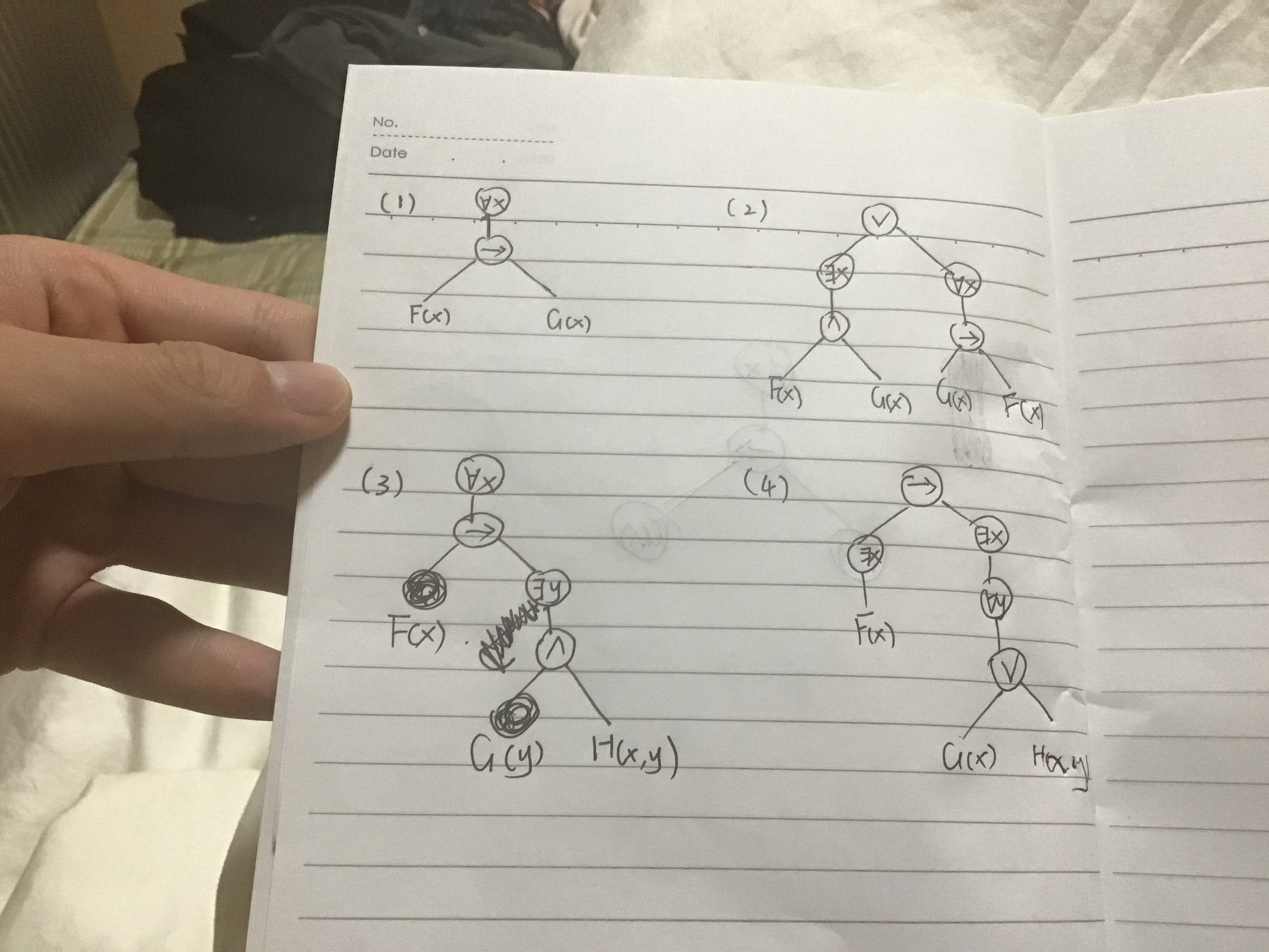 No.
Date . .
(1) ∀x
→
F(x) G(x)
(2) ∨
∃x ∀x
∧ →
F(x) G(x) G(x) F(x)
(3) ∀x
→
F(x) ∃y
∧
G(y) H(x,y)
(4) →
∃x ∃x
F(x) ∀y
∨
G(x) H(x,y)